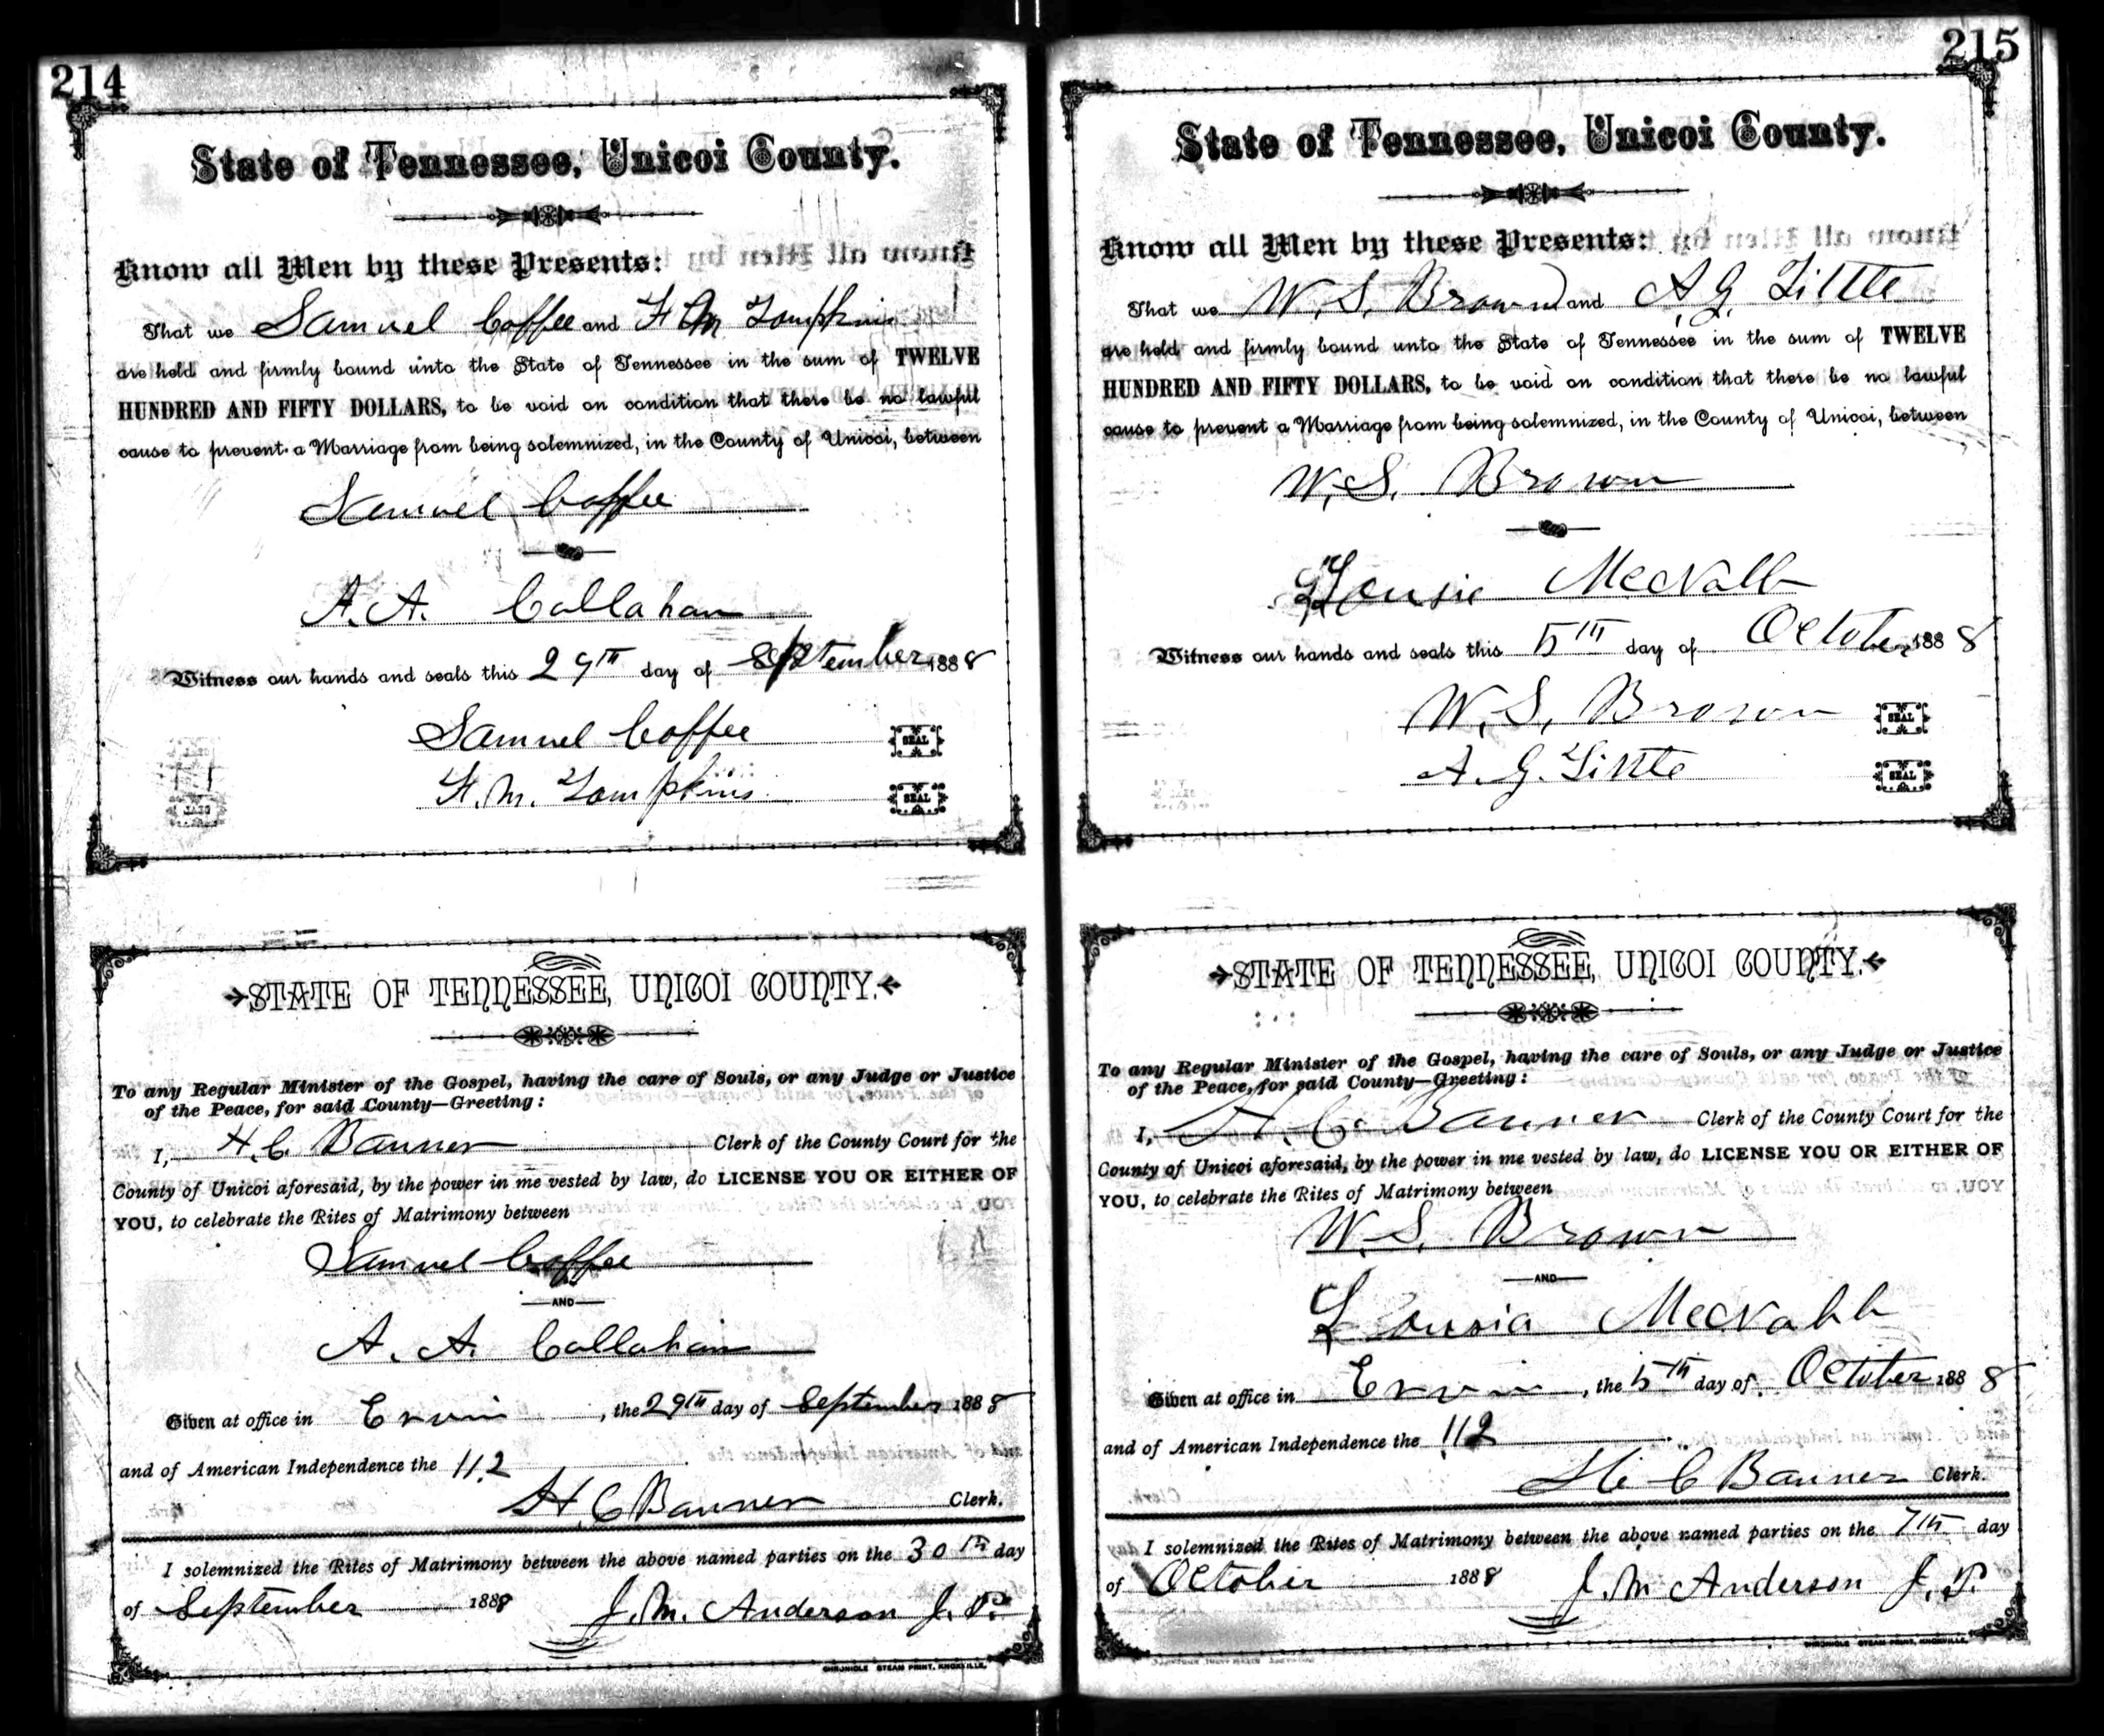 214
State of Tennessee, Unicoi County.
Know all Men by these Presents:
That we Samuel Coffee and F. M. Tompkins
are held and firmly bound unto the State of Tennessee in the sum of TWELVE
HUNDRED AND FIFTY DOLLARS, to be void on condition that there be no lawful
cause to prevent a Marriage from being solemnized, in the County of Unicoi, between
Samuel Coffee
A. A. Callahan
Witness our hands and seals this 29th day of September 1888
Samuel Coffee SEAL
F. M. Tompkins SEAL
STATE OF TENNESSEE, UNICOI COUNTY.
To any Regular Minister of the Gospel, having the care of Souls, or any Judge or Justice
of the Peace, for said County—Greeting:
I, H. C. Banner Clerk of the County Court for the
County of Unicoi aforesaid, by the power in me vested by law, do LICENSE YOU OR EITHER OF
YOU, to celebrate the Rites of Matrimony between
Samuel Coffee
AND
A. A. Callahan
Given at office in Erwin, the 29th day of September 1888
and of American Independence the 112
H. C Banner Clerk.
I solemnized the Rites of Matrimony between the above named parties on the 30th day
of September 1888 J. M. Anderson J. P.
CHRONICLE STEAM PRINT, KNOXVILLE.
215
State of Tennessee, Unicoi County.
Know all Men by these Presents:
That we W. S. Brown and A. G. Tittle
are held and firmly bound unto the State of Tennessee in the sum of TWELVE
HUNDRED AND FIFTY DOLLARS, to be void on condition that there be no lawful
cause to prevent a Marriage from being solemnized, in the County of Unicoi, between
W. S. Brown
Lousia McNabb
Witness our hands and seals this 5th day of October 1888
W. S. Brown SEAL
A. G. Tittle SEAL
STATE OF TENNESSEE, UNICOI COUNTY.
To any Regular Minister of the Gospel, having the care of Souls, or any Judge or Justice
of the Peace, for said County—Greeting:
I, H. C. Banner Clerk of the County Court for the
County of Unicoi aforesaid, by the power in me vested by law, do LICENSE YOU OR EITHER OF
YOU, to celebrate the Rites of Matrimony between
W. S. Brown
AND
Lousia McNabb
Given at office in Erwin, the 5th day of October 1888
and of American Independence the 112
H. C Banner Clerk.
I solemnized the Rites of Matrimony between the above named parties on the 7th day
of October 1888 J. M Anderson J. P.
CHRONICLE STEAM PRINT, KNOXVILLE.